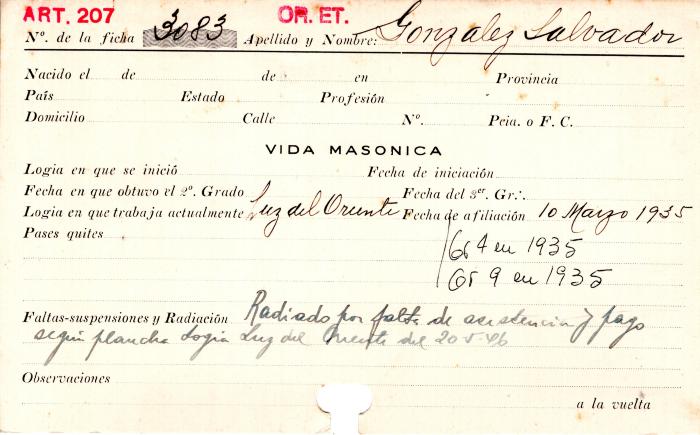 ART. 207 OR. ET.
Nº. de la ficha 3083 Apellido y Nombre: Gonzalez Salvador
Nacido el de de en Provincia
País Estado Profesión
Domicilio Calle Nº. Pcia. o F. C.
VIDA MASONICA
Logia en que se inició Fecha de iniciación
Fecha en que obtuvo el 2º. Grado Fecha del 3er. Gr∴
Logia en que trabaja actualmente Luz del Oriente Fecha de afiliación 10 Marzo 1935
Pases quites
Gr 4 en 1935
Gr 9 en 1935
Faltas-suspensiones y Radiación Radiado por falta de asistencia y pago
según plancha Logia Luz del Oriente del 20-5-46
Observaciones
a la vuelta